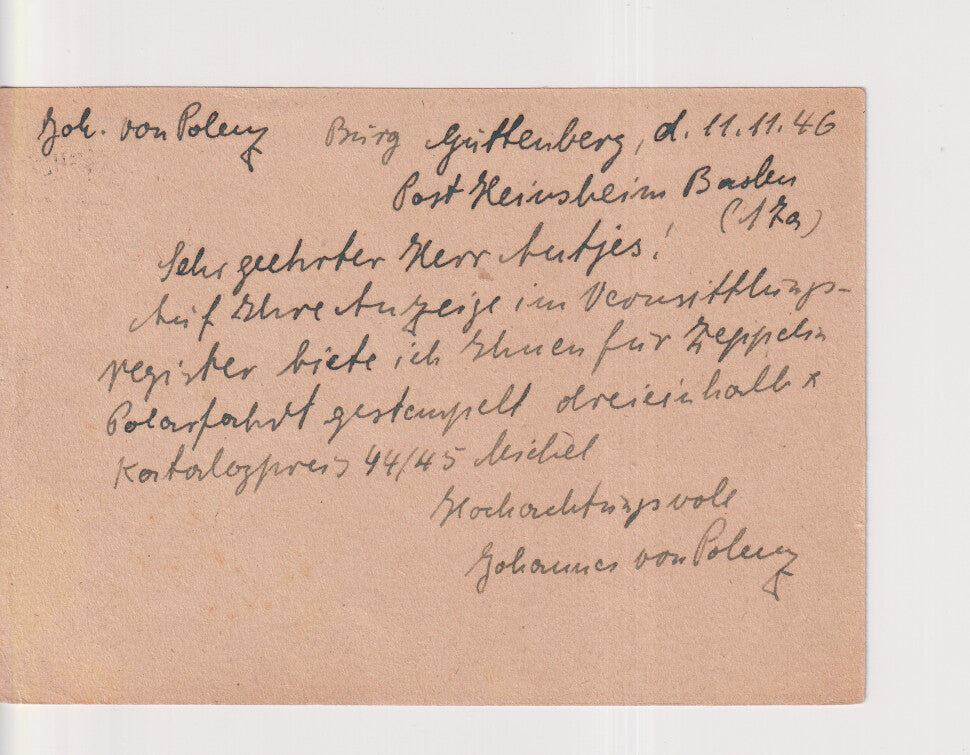 Joh. von Polenz Burg Guttenberg, d. 11.11.46
Post Heinsheim Baden
(17a)
Sehr geehrter Herr Antjes!
Auf Ihre Anzeige im Vermittlungs-
register biete ich Ihnen für Zeppelin
Polarfahrt gestempelt dreieinhalb x
Katalogpreis 44/45 Michel
Hochachtungsvoll
Johannes von Polenz